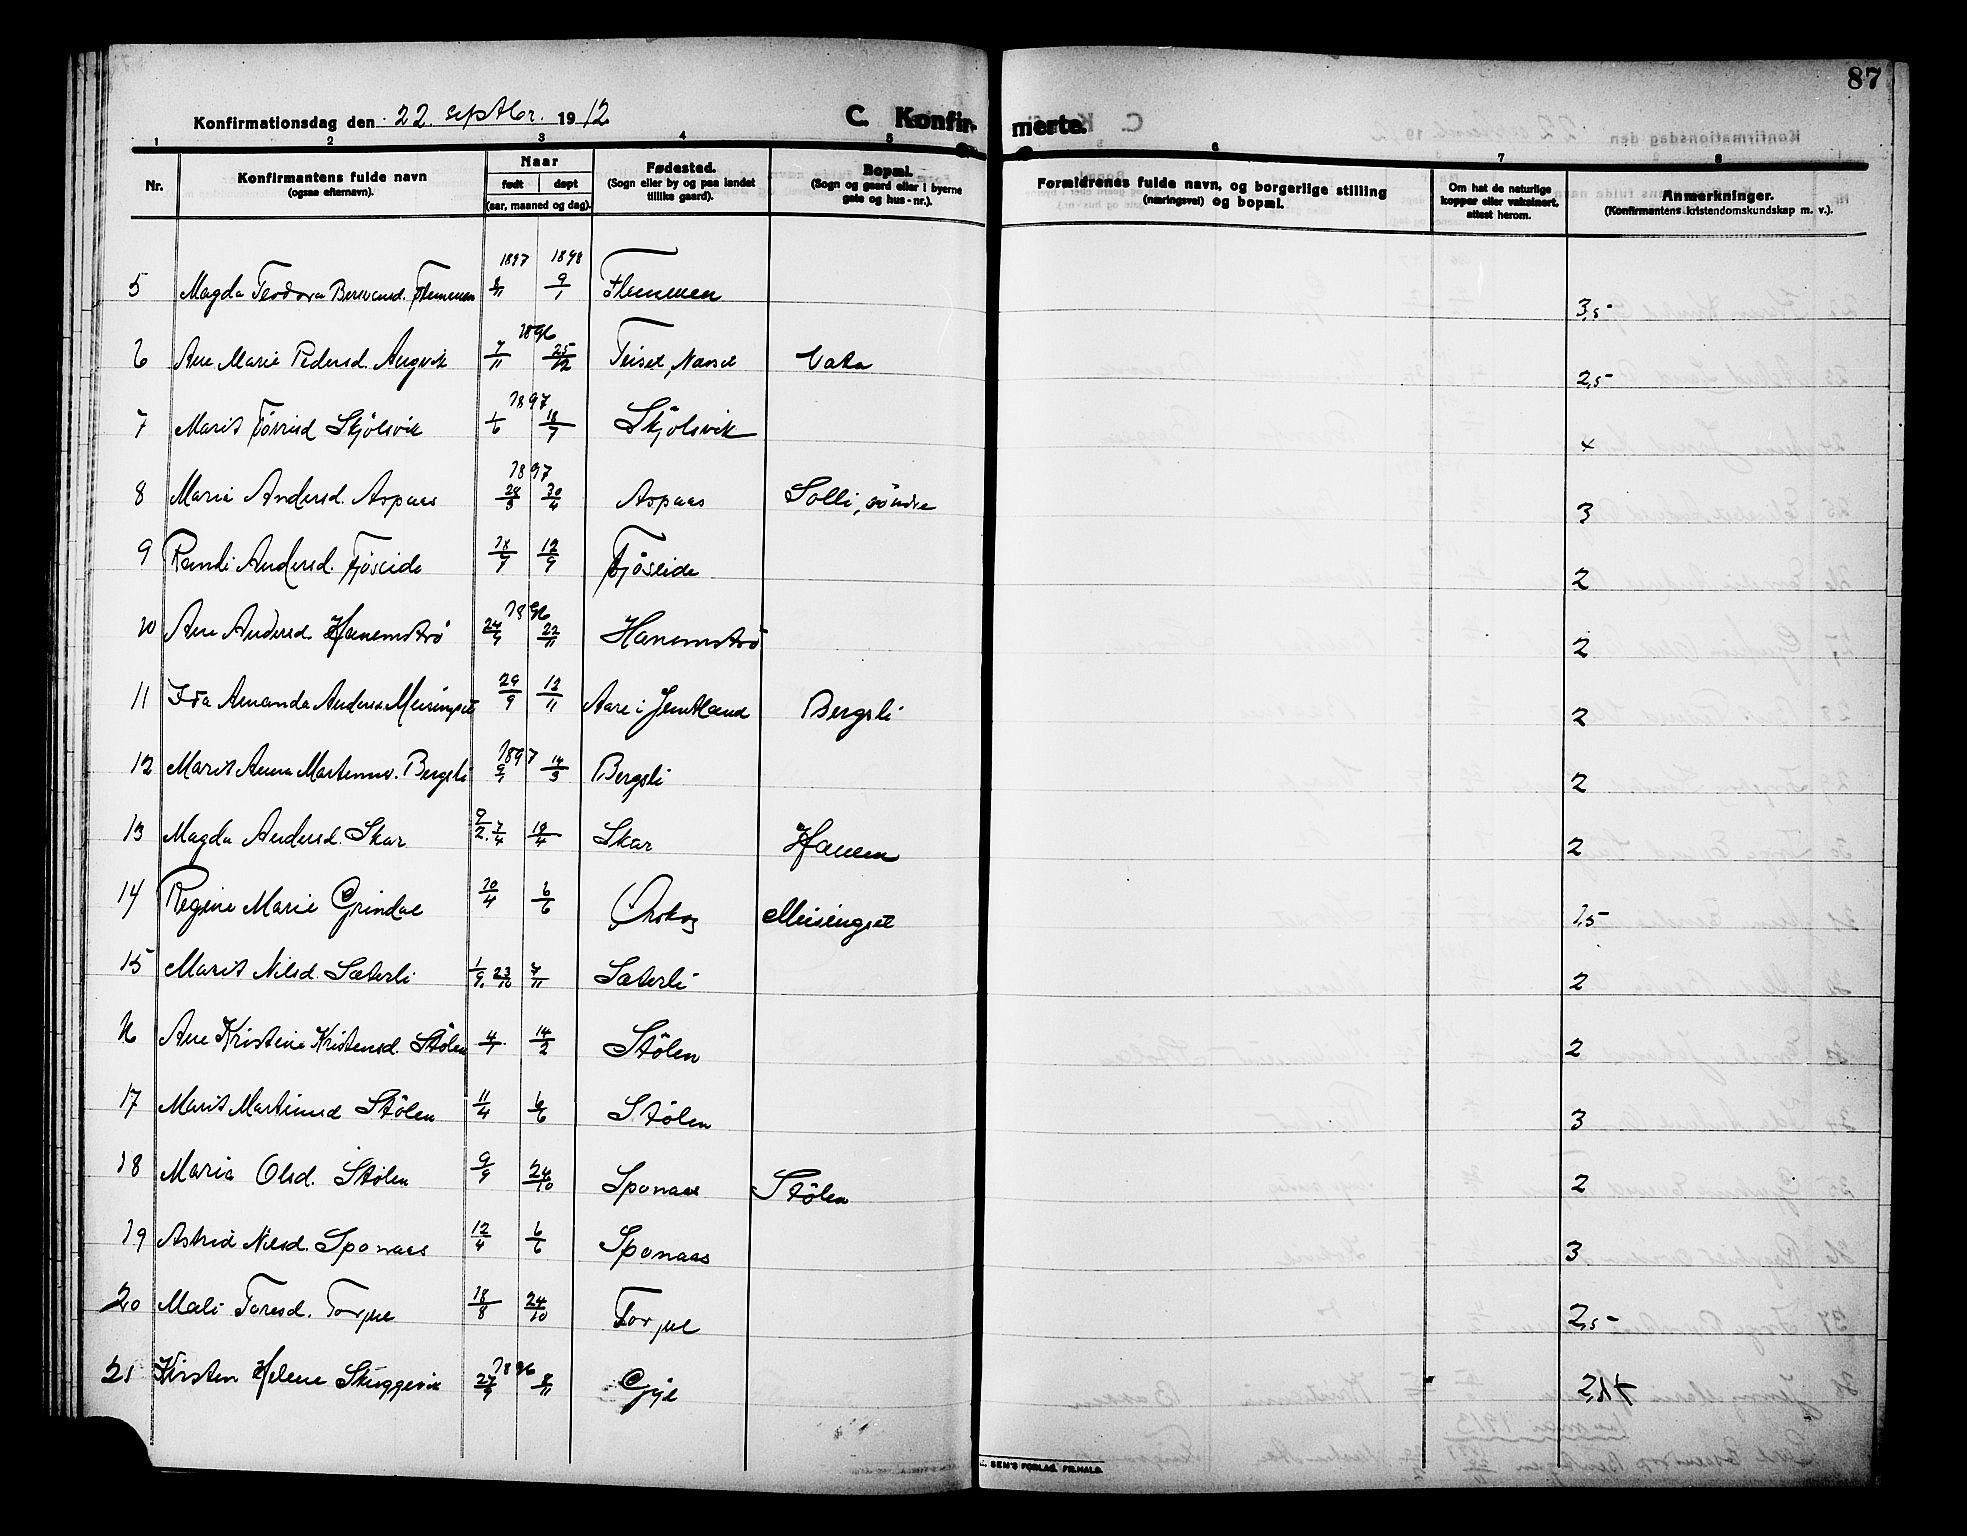 87
Konfirmationsdag den 22. septbr. 1912
C. Konfirmerte.
1 2 3 4 5 6 7 8
Nr. Konfirmantens fulde navn (ogsaa efternavn). Naar født døpt (aar, maaned og dag). Fødested. (Sogn eller by og paa landet tillike gaard). Bopæl. (Sogn og gaard eller i byerne gate og hus-nr.). Forældrenes fulde navn, og borgerlige stilling (næringsvei) og bopæl. Om hat de naturlige kopper eller vaksinert, attest herom. Anmerkninger. (Konfirmantens kristendomskundskap m. v.).
1897 1898
5 Magda Teodora Flemmen 9/1 Flemmen 3,5
1896
6 Ane Marie Pedersd. Angvik 7/11 25/12 Teiset, Nesset Vata 2,5
1897
7 Marit Skjölsvik 1/6 18/7 Skjölsvik
1897
8 Marie Andersd. Aspaas 28/3 30/4 Aspaas Solli, söndre 3
9 Randi Andersd. Fjöseide 18/7 12/9 Fjöseide 2
1896
10 Ane Andersd. Hanemströ 24/9 22/11 Hanemströ 2
11 Ida Amanda Anders. Meisingset 29/9 13/11 Aare i Jemtland Bergsli 2
1897
12 Marit Anna Bergsli 9/1 14/3 Bergsli 2
13 Magda Andersd. Skar 7/4 19/4 Skar Hanem 2
14 Regine Marie Grindal 10/4 6/6 Ørskog Meisingset 1,5
15 Marit Nilsd. Sæterli 23/10 7/11 Sæterli 2
16 Ane Kristine Kristensd. Stölen 4/1 14/2 Stölen 2
17 Marit Martinusd Stölen 11/4 6/6 Stölen 3
18 Maria Olsd. Stölen 9/9 24/10 Sponaas Stölen 2
19 Astrid Nilsd. Sponaas 12/4 6/6 Sponaas 3
20 Mali Toresd. Torjul 18/8 24/10 Torjul 2,5
1896
21 Kirsten Helene Skuggevik 27/9 8/11 Gyl
SEM'S FORLAG, FR.HALD.